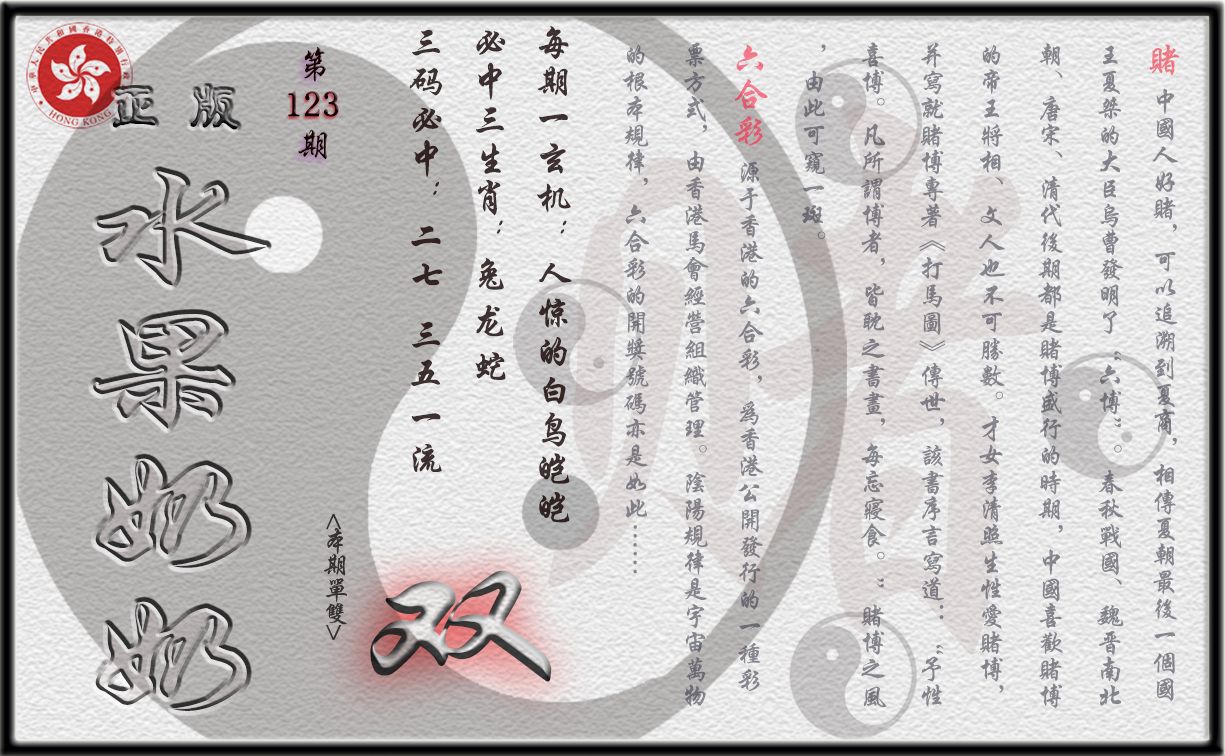 賭 中國人好賭，可以追溯到夏商，相傳夏朝最後一個國
王夏桀的大臣烏曹發明了“六博”。春秋戰國、魏晋南北
朝、唐宋、清代後期都是賭博盛行的時期，中國喜歡賭博
的帝王將相、文人也不可勝數。才女李清照生性愛賭博，
并寫就賭博專著《打馬圖》傳世，該書序言寫道：“予性
喜博。凡所謂博者，皆耽之書畫，每忘寢食。”賭博之風
，由此可窺一斑。
六合彩 源于香港的六合彩，爲香港公開發行的一種彩
票方式，由香港馬會經營組織管理。陰陽規律是宇宙萬物
的根本規律，六合彩的開獎號碼亦是如此……
每期一玄机：人惊的白鸟皑皑
必中三生肖：兔龙蛇
三码必中：二七 三五 一流
双
<本期單雙>
第
123
期
正版
水果奶奶
中華人民共和國香港特別行政區
HONG KONG
賭